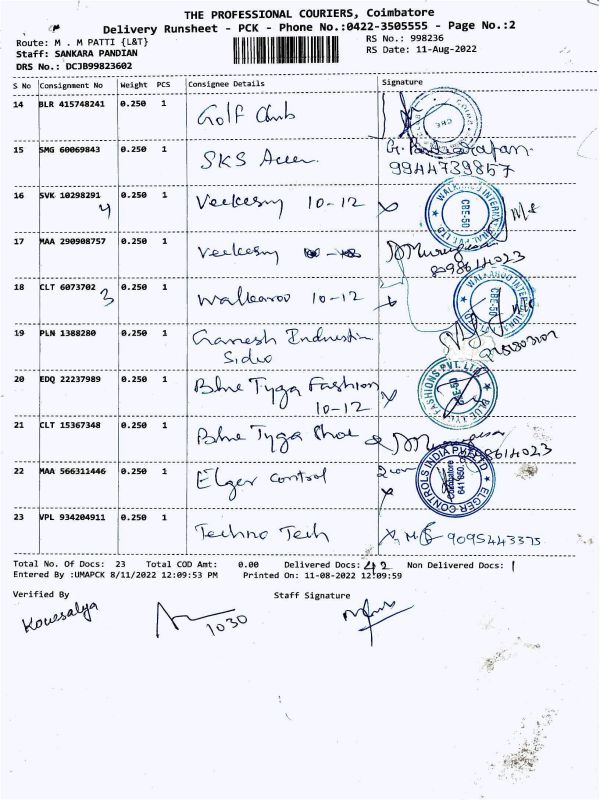 THE PROFESSIONAL COURIERS, Coimbatore
Delivery Runsheet - PCK - Phone No.:0422-3505555 - Page No.:2
Route: M . M PATTI {L&T}
RS No.: 998236
Staff: SANKARA PANDIAN
RS Date: 11-Aug-2022
DRS No.: DCJB99823602
S No Consignment No Weight PCS Consignee Details Signature
14 BLR 415748241 0.250 1 Golf Club
15 SMG 60069843 0.250 1 SKS
9944739857
16 SVK 10298291 0.250 1 Veekesy 10-12
4
17 MAA 290908757 0.250 1 Veekesy
8098614023
18 CLT 6073702 0.250 1 Walkaroo 10-12
3
19 PLN 1388280 0.250 1 Ganesh
Sidco
20 EDQ 22237989 0.250 1 Blue Tyga Fashion
10-12
21 CLT 15367348 0.250 1 Blue Tyga
22 MAA 566311446 0.250 1 Elger Control
ELGER CONTROLS INDIA PVT LTD
Coimbatore
23 VPL 934204911 0.250 1 Techno Tech 9095443375
Total No. Of Docs: 23 Total COD Amt: 0.00 Delivered Docs: 42 Non Delivered Docs: 1
Entered By :UMAPCK 8/11/2022 12:09:53 PM Printed On: 11-08-2022 12:09:59
Verified By Staff Signature
Kowsalya
1030